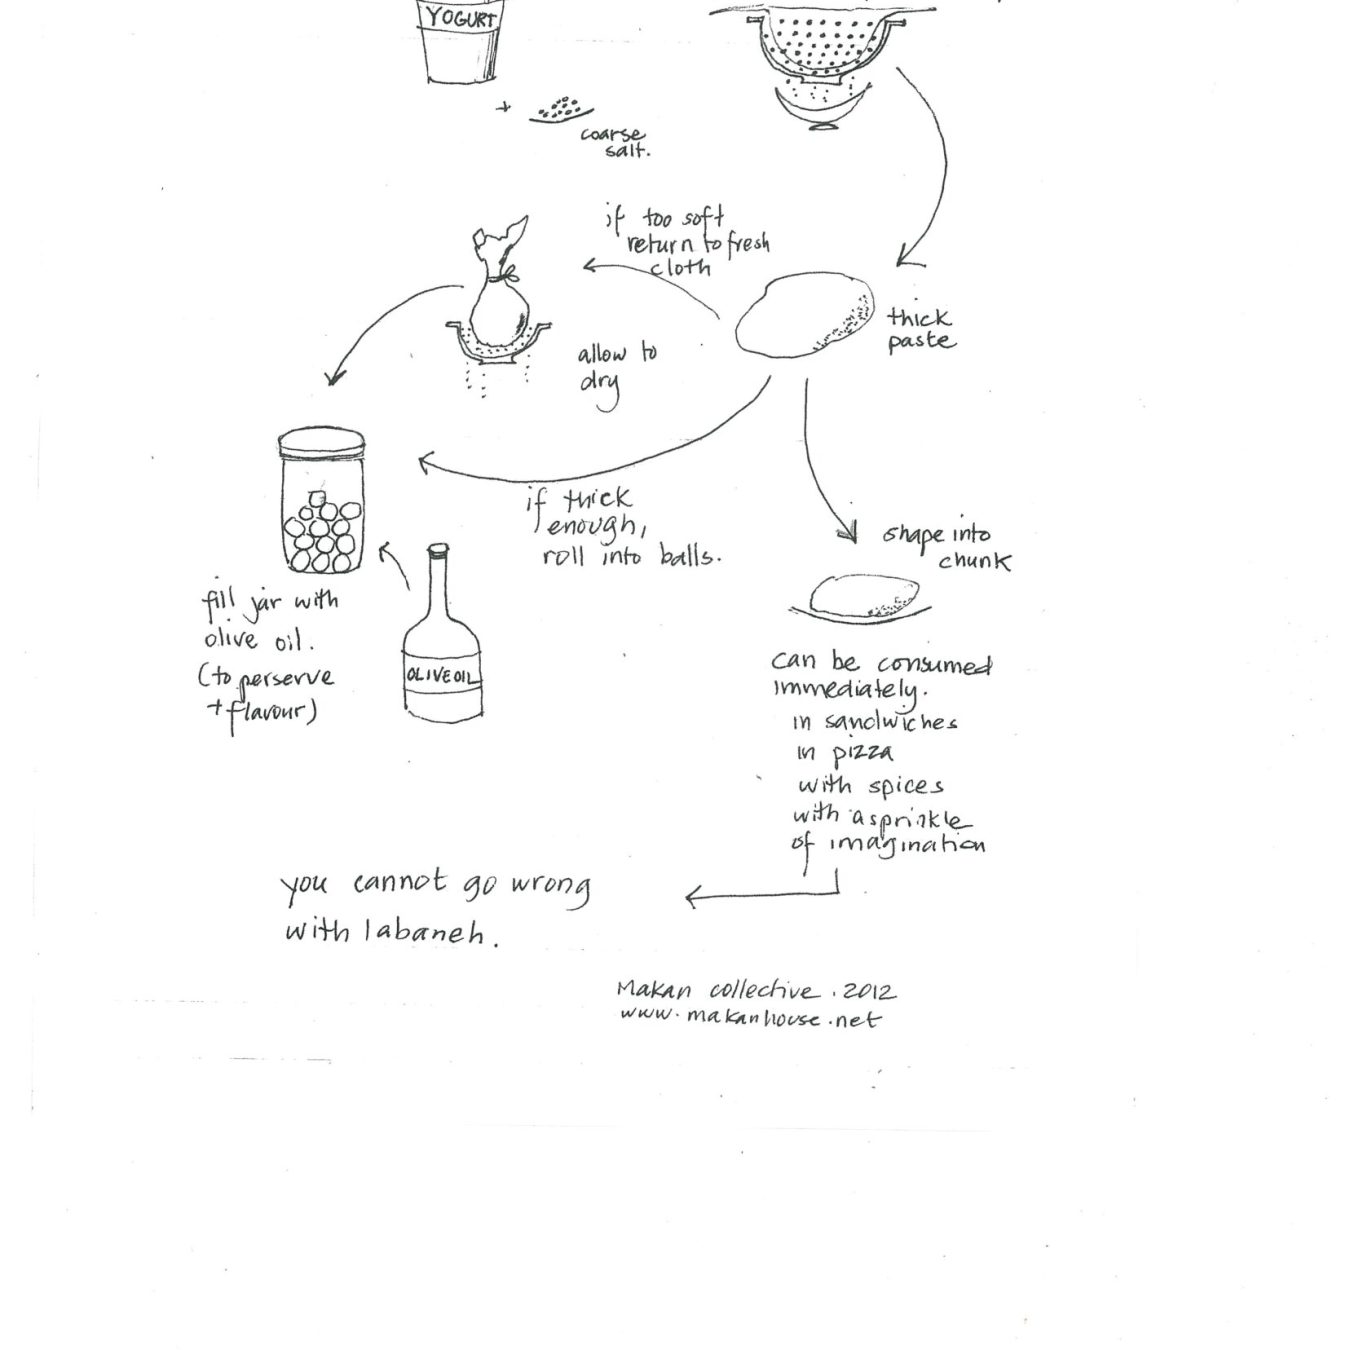 YOGURT
+
coarse
salt.
if too soft
return to fresh
cloth
thick
paste
allow to
dry
if thick
enough,
roll into balls.
shape into
chunk
fill jar with
olive oil.
(to perserve
+ flavour)
OLIVE OIL
can be consumed
immediately.
in sandwiches
in pizza
with spices
with a sprinkle
of imagination
you cannot go wrong
with labaneh.
Makan collective . 2012
www.makanhouse.net